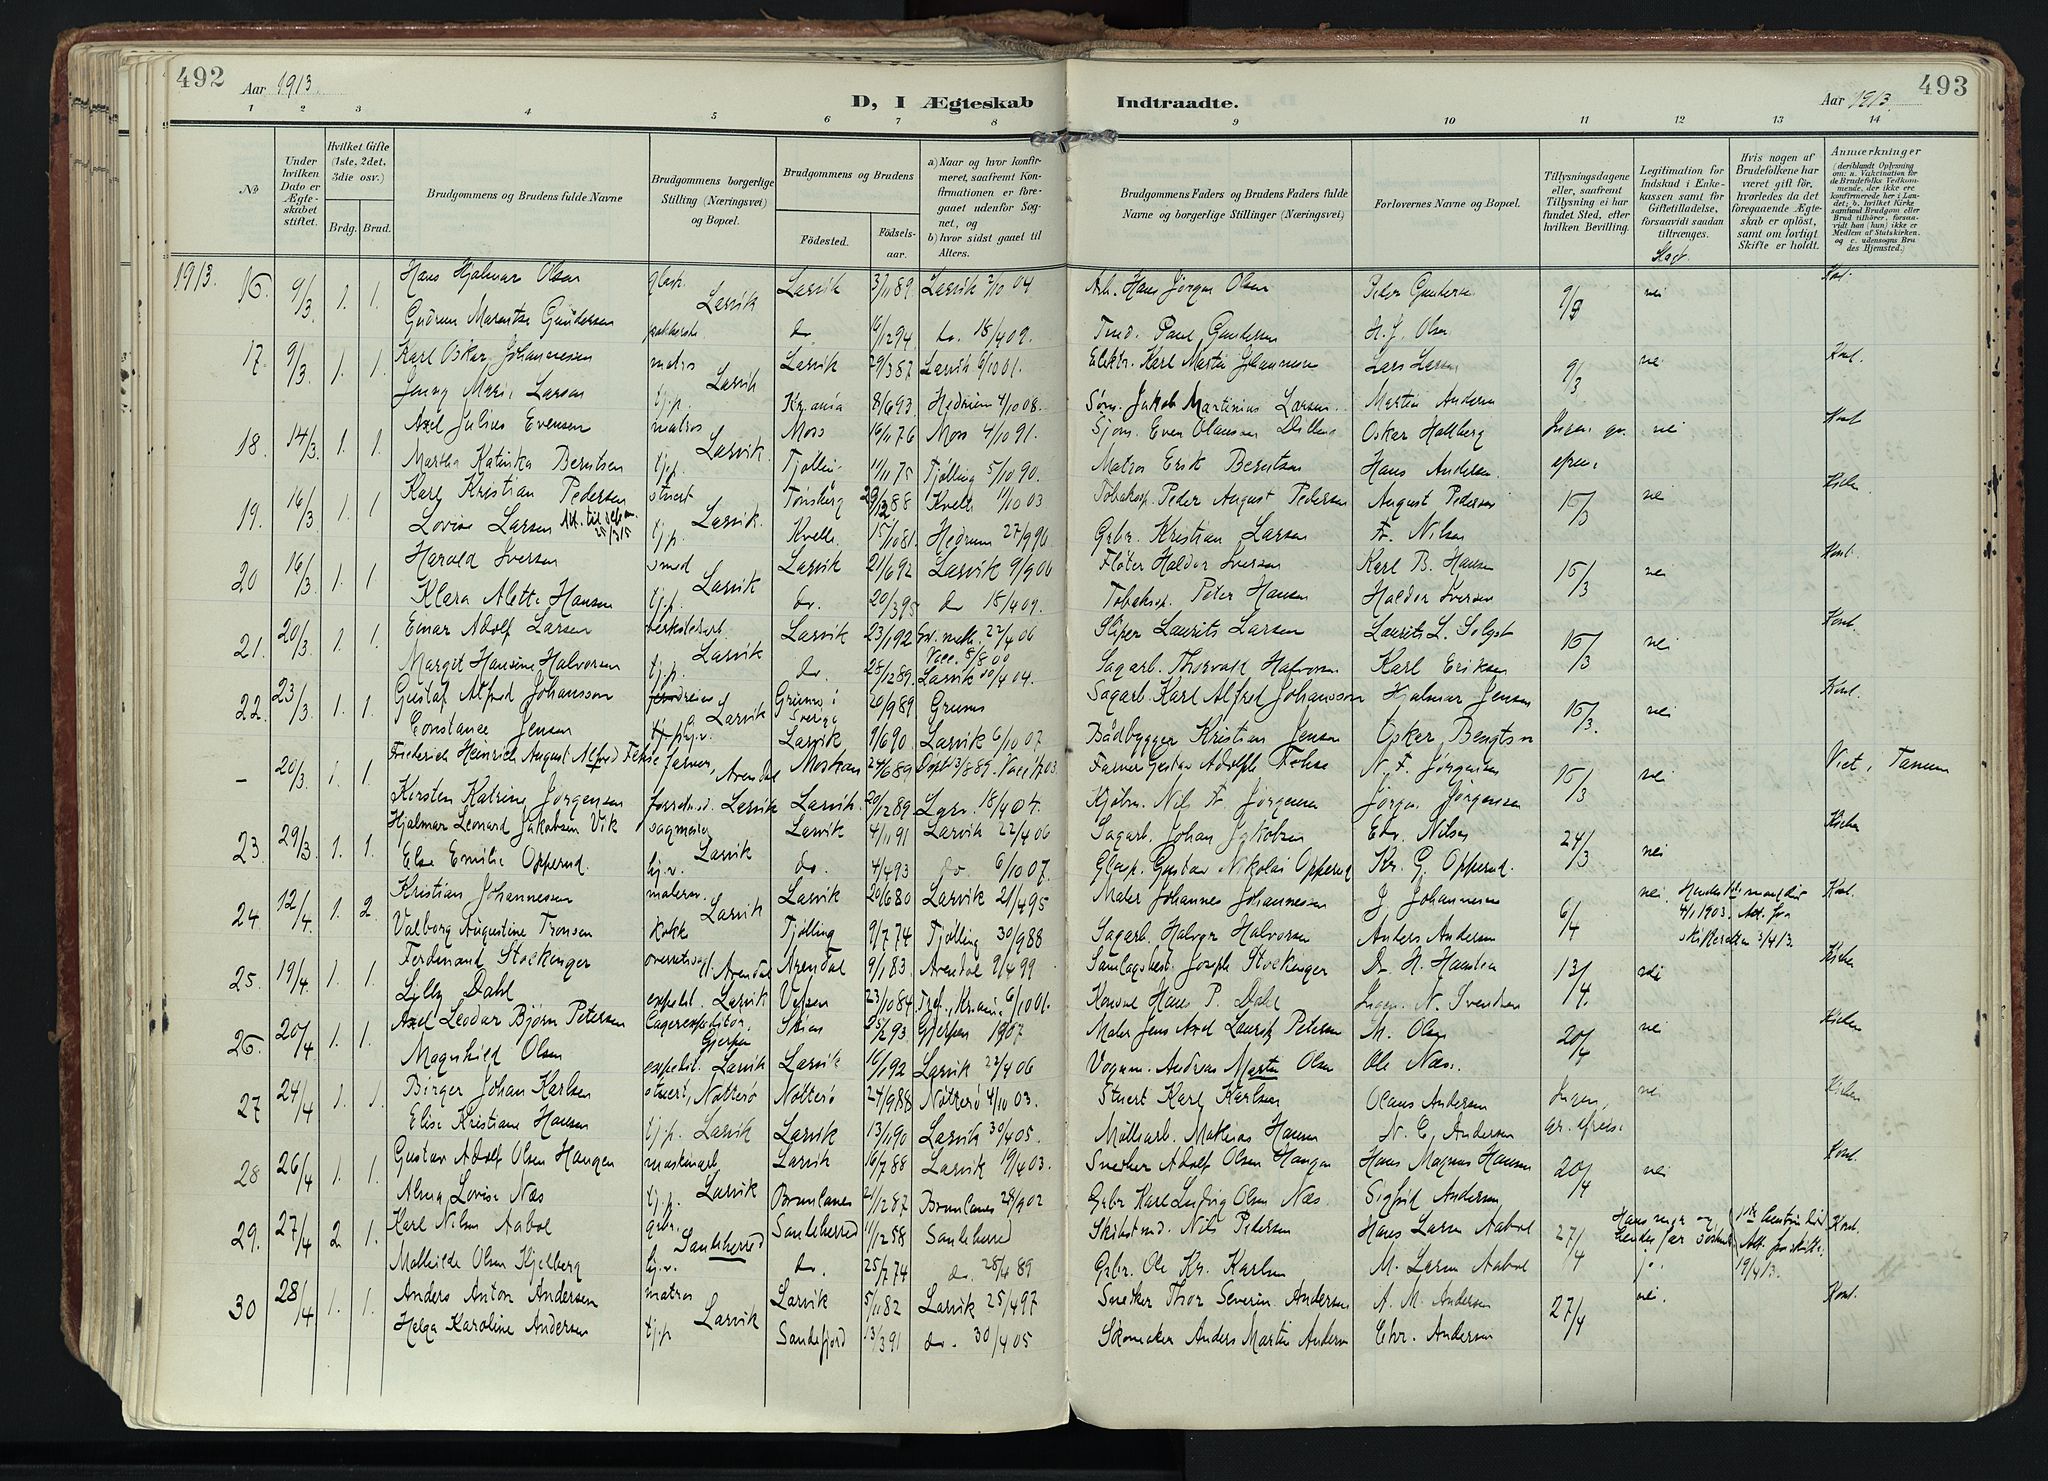 492
Aar 1913
D, I Ægteskab
Indtraadte.
Aar 1913.
493
1 2 3 4 5 6 7 8 9 10 11 12 13 14
No
Under hvilken Dato er Ægteskabet stiftet.
Hvilket Gifte (1ste, 2det, 3die osv.)
Brdg. Brud.
Brudgommens og Brudens fulde Navne
Brudgommens borgerlige Stilling (Næringsvei) og Bopæl.
Brudgommens og Brudens
Födested.
Födselsaar.
a) Naar og hvor konfirmeret, saafremt Konfirmationen er foregaaet udenfor Sognet, og
b) hvor sidst gaaet til Alters.
Brudgommens Faders og Brudens Faders fulde Navne og borgerlige Stillinger (Næringsvei)
Forlovernes Navne og Bopæl.
Tillysningsdagene eller, saafremt Tillysning ei har fundet Sted, efter hvilken Bevilling.
Legitimation for Indskud i Enkekassen samt for Giftetilladelse, forsaavidt saadan tiltrænges.
Hvis nogen af Brudefolkene har været gift för, hvorledes da det foregaaende Ægteskab er oplöst, samt om lovligt Skifte er holdt.
Anmærkninger
(deriblandt Oplysning om: a. Vakcination for de Brudefolks Vedkommende, der ikke ere konfirmerede her i Landet; b. hvilket Kirkesamfund Brudgom eller Brud tilhörer, forsaavidt han (hun) ikke er Medlem af Statskirken, og c. udensogns Brudes Hjemsted.
1913. 16. 9/3. 1. 1. Hans Hjalmar Olsen Larvik Larvik 3/11 89. Larvik 2/10 04 Arb. Hans Jørgen Olsen Peder Gundersen 9/3 nei
Gudrun Marentze Gundersen do 16/12 94. do. 18/4 09. Paul Gundersen H. J. Olsen
17. 9/3. 1. 1. Karl Oskar Johannesen matros Larvik Larvik 29/3 87 Larvik 6/10 01. Elektr. Karl Martin Johannesen Lars Larsen 9/3 nei
Jenny Marie Larsen tj.p. Kr.ania 8/6 93 Hedrum 4/10 08. Jakob Martinius Larsen. Martin Andersen
18. 14/3. 1. 1. Axel Julius Evensen matros Larvik Moss 16/11 76 Moss 4/10 91. Sjøm. Even Olaussen Dilling Oskar Hallberg nei
Martha Katinka Berntsen tj.p. Tjølling 11/11 75 Tjølling 5/10 90. Matros Erik Berntsen Hans Andersen.
19. 16/3 1. 1 Karl Kristian Pedersen stuert Larvik. Tønsberg 29/12 88 Kvelle 11/10 03 Peder August Pedersen August Pedersen 15/3 nei Kirken
Lovise Larsen tj.p. Kvelle. 15/10 81. Hedrum 27/9 96 Gbr. Kristian Larsen Fr. Nilsen
20 16/3 1. 1 Harald Iversen smed Larvik Larvik 21/6 92 Larvik 9/9 06 Fløter Haldor Iversen Karl B. Hansen 15/3 nei
Klara Alette Hansen tj.p. do. 20/3 95 do 18/4 09. Peter Hansen Haldor Iversen
21. 20/3. 1. 1. Einar Adolf Larsen Larvik Larvik 23/1 92 22/4 06 Laurits Larsen Laurits L. 15/3 nei
Margit Hansine Halvorsen tj.p. do. 25/12 89. Vacc. 8/8 00 Larvik 10/4 04. Sagarb. Thorvald Halvorsen Karl Eriksen
22. 23/3. 1. 1. Gustaf Alfred Johansson Larvik Grums i Sverige 20/9 89 Grums Sagarb. Karl Alfred Johansson Hjalmar Jensen 15/3. nei
Constance Jensen Larvik 9/6 90. Larvik 6/10 07 Bådbygger Kristian Jensen Oskar Bengtsen
— 20/3. 1 1. Friederich Heinrich August Alfred Fehse farver, Arendal 24/6 89 Døpt 13/8 89. Farver Gustav Adolph Fehse N. F. Jørgensen 15/3 nei Viet i Tanum
Kirsten Katrine Jørgensen Larvik Larvik. 20/12 89. Larv. 18/4 04. Kjøbm. Nil. F. Jørgensen Jørgen Jørgensen
23. 29/3. 1. 1. Hjalmar Leonard Jakobsen Vik Larvik Larvik 4/11 91 Larvik 22/4 06 Sagarb. Johan Jakobsen Edv. Nilsen 24/3 nei Kirken
Else Emilie Opperud. hj.v. do. 4/4 93 do 6/10 07. Gustav Nikolai Opperud Kr. G. Opperud.
24 12/4. 1. 2. Kristian Johannesen malersv. Larvik Larvik 20/6 80 Larvik 21/4 95 Maler Johannes Johannesen J. Johannesen 6/4 nei. 4/1 1903. Att. fra skifteretten 3/4 13.
Valborg Augustine Tronsen kokk Tjølling 9/7 74 Tjølling 30/9 88 Sagarb. Halvor Halvorsen Anders Andersen
25. 19/4. 1. 1. Ferdinand Stockinger Arendal Arendal 9/1 83. Arendal 9/4 99 Joseph Stockinger Dr. H. Hansteen 13/4. nei Kirken
Lilly Dahl expedit. Larvik Vefsen 23/10 84 6/10 01. Konsul Hans P. Dahl N. Svendsen
26. 20/4 1. 1 Axel Leodar Bjørn Petersen Lagerexpeditør. Gjerpen Skien 25/2 93. Gjerpen 1907 Maler Jens Axel Lauritz Petersen M. Olsen 20/4 nei Kirken
Magnhild Olsen expedit. Larvik Larvik 16/1 92 Larvik 22/4 06 Vognm. Andreas Martin Olsen Ole Næss.
27 24/4 1. 1. Birger Johan Karlsen stuert, Nøtterø Nøtterø 24/9 88 Nøtterø 4/10 03. Stuert Karl Karlsen Olaus Andersen nei Kirken
Elise Kristiane Hansen tj.p. Larvik Larvik 13/11 90 Larvik 30/4 05. Møllearb. Mathias Hansen N. C. Andersen
28 26/4 1. 1. Gustav Adolf Olsen Haugen maskinarb. Larvik Larvik 16/7 88 Larvik 19/4 03. Snedker Adolf Olsen Haugen Hans Magnus Hansen 20/4 nei
Alma Lovise Næs tj.p. Brunlanes 21/12 87 Brunlanes 28/9 02 Gbr. Karl Ludvig Olsen Næs Sigfrid Andersen
29. 27/4 2. 1. Karl Nilsen Aabol gbr. Sandeherred Sandeherred 11/12 58 Sandeherred Nils Pedersen Hans Larsen Aabol 27/4 19/4 13.
Mathilde Olsen Kjelberg hj.v. do. 25/7 74 do. 28/4 89 Gbr. Ole Kr. Karlsen M. Larsen Aabol
30 28/4 1. 1. Anders Anton Andersen matros Larvik Larvik 5/11 82 Larvik 25/4 97 Snedker Thor Severin Andersen A. M. Andersen 27/4 nei.
Helga Karoline Andersen tj.p Sandefjord 13/3 91 do. 30/4 05 Skomaker Anders Martin Andersen Chr. Andersen